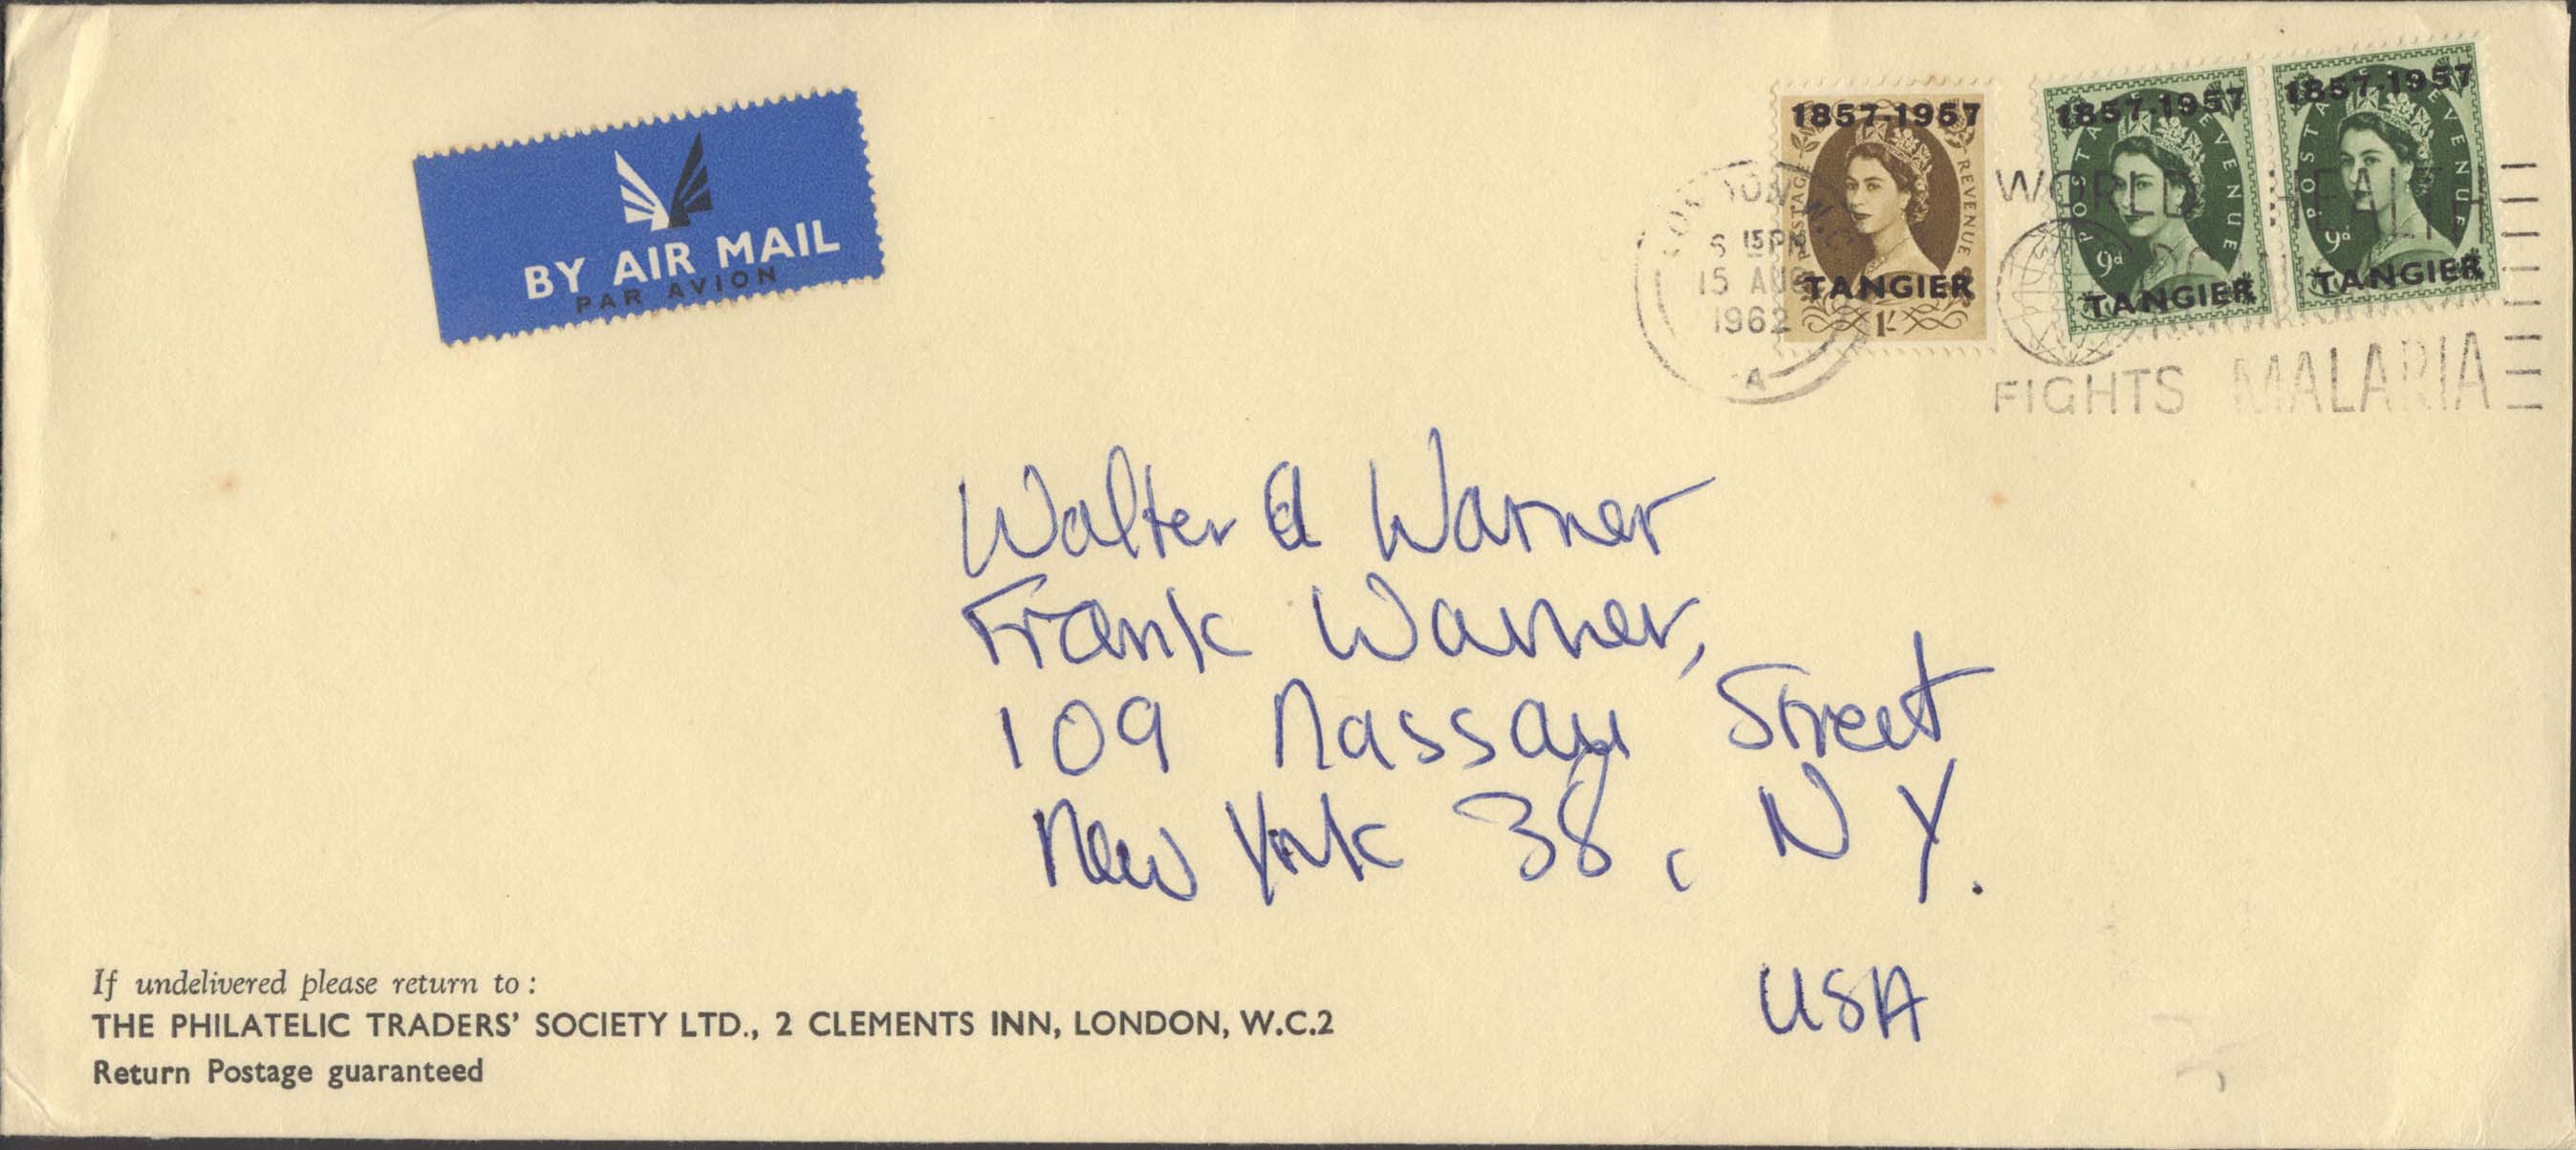 BY AIR MAIL
PAR AVION
1857-1957
POSTAGE REVENUE
TANGIER
1/-
1857-1957
POSTAGE REVENUE
9d
TANGIER
1857-1957
POSTAGE REVENUE
9d
TANGIER
LONDON W.C.
6 15PM
15 AUG
1962
A
WORLD HEALTH
FIGHTS MALARIA
Walter A Warner
Frank Warner,
109 Nassau Street
New York 38, N Y.
USA
If undelivered please return to:
THE PHILATELIC TRADERS' SOCIETY LTD., 2 CLEMENTS INN, LONDON, W.C.2
Return Postage guaranteed